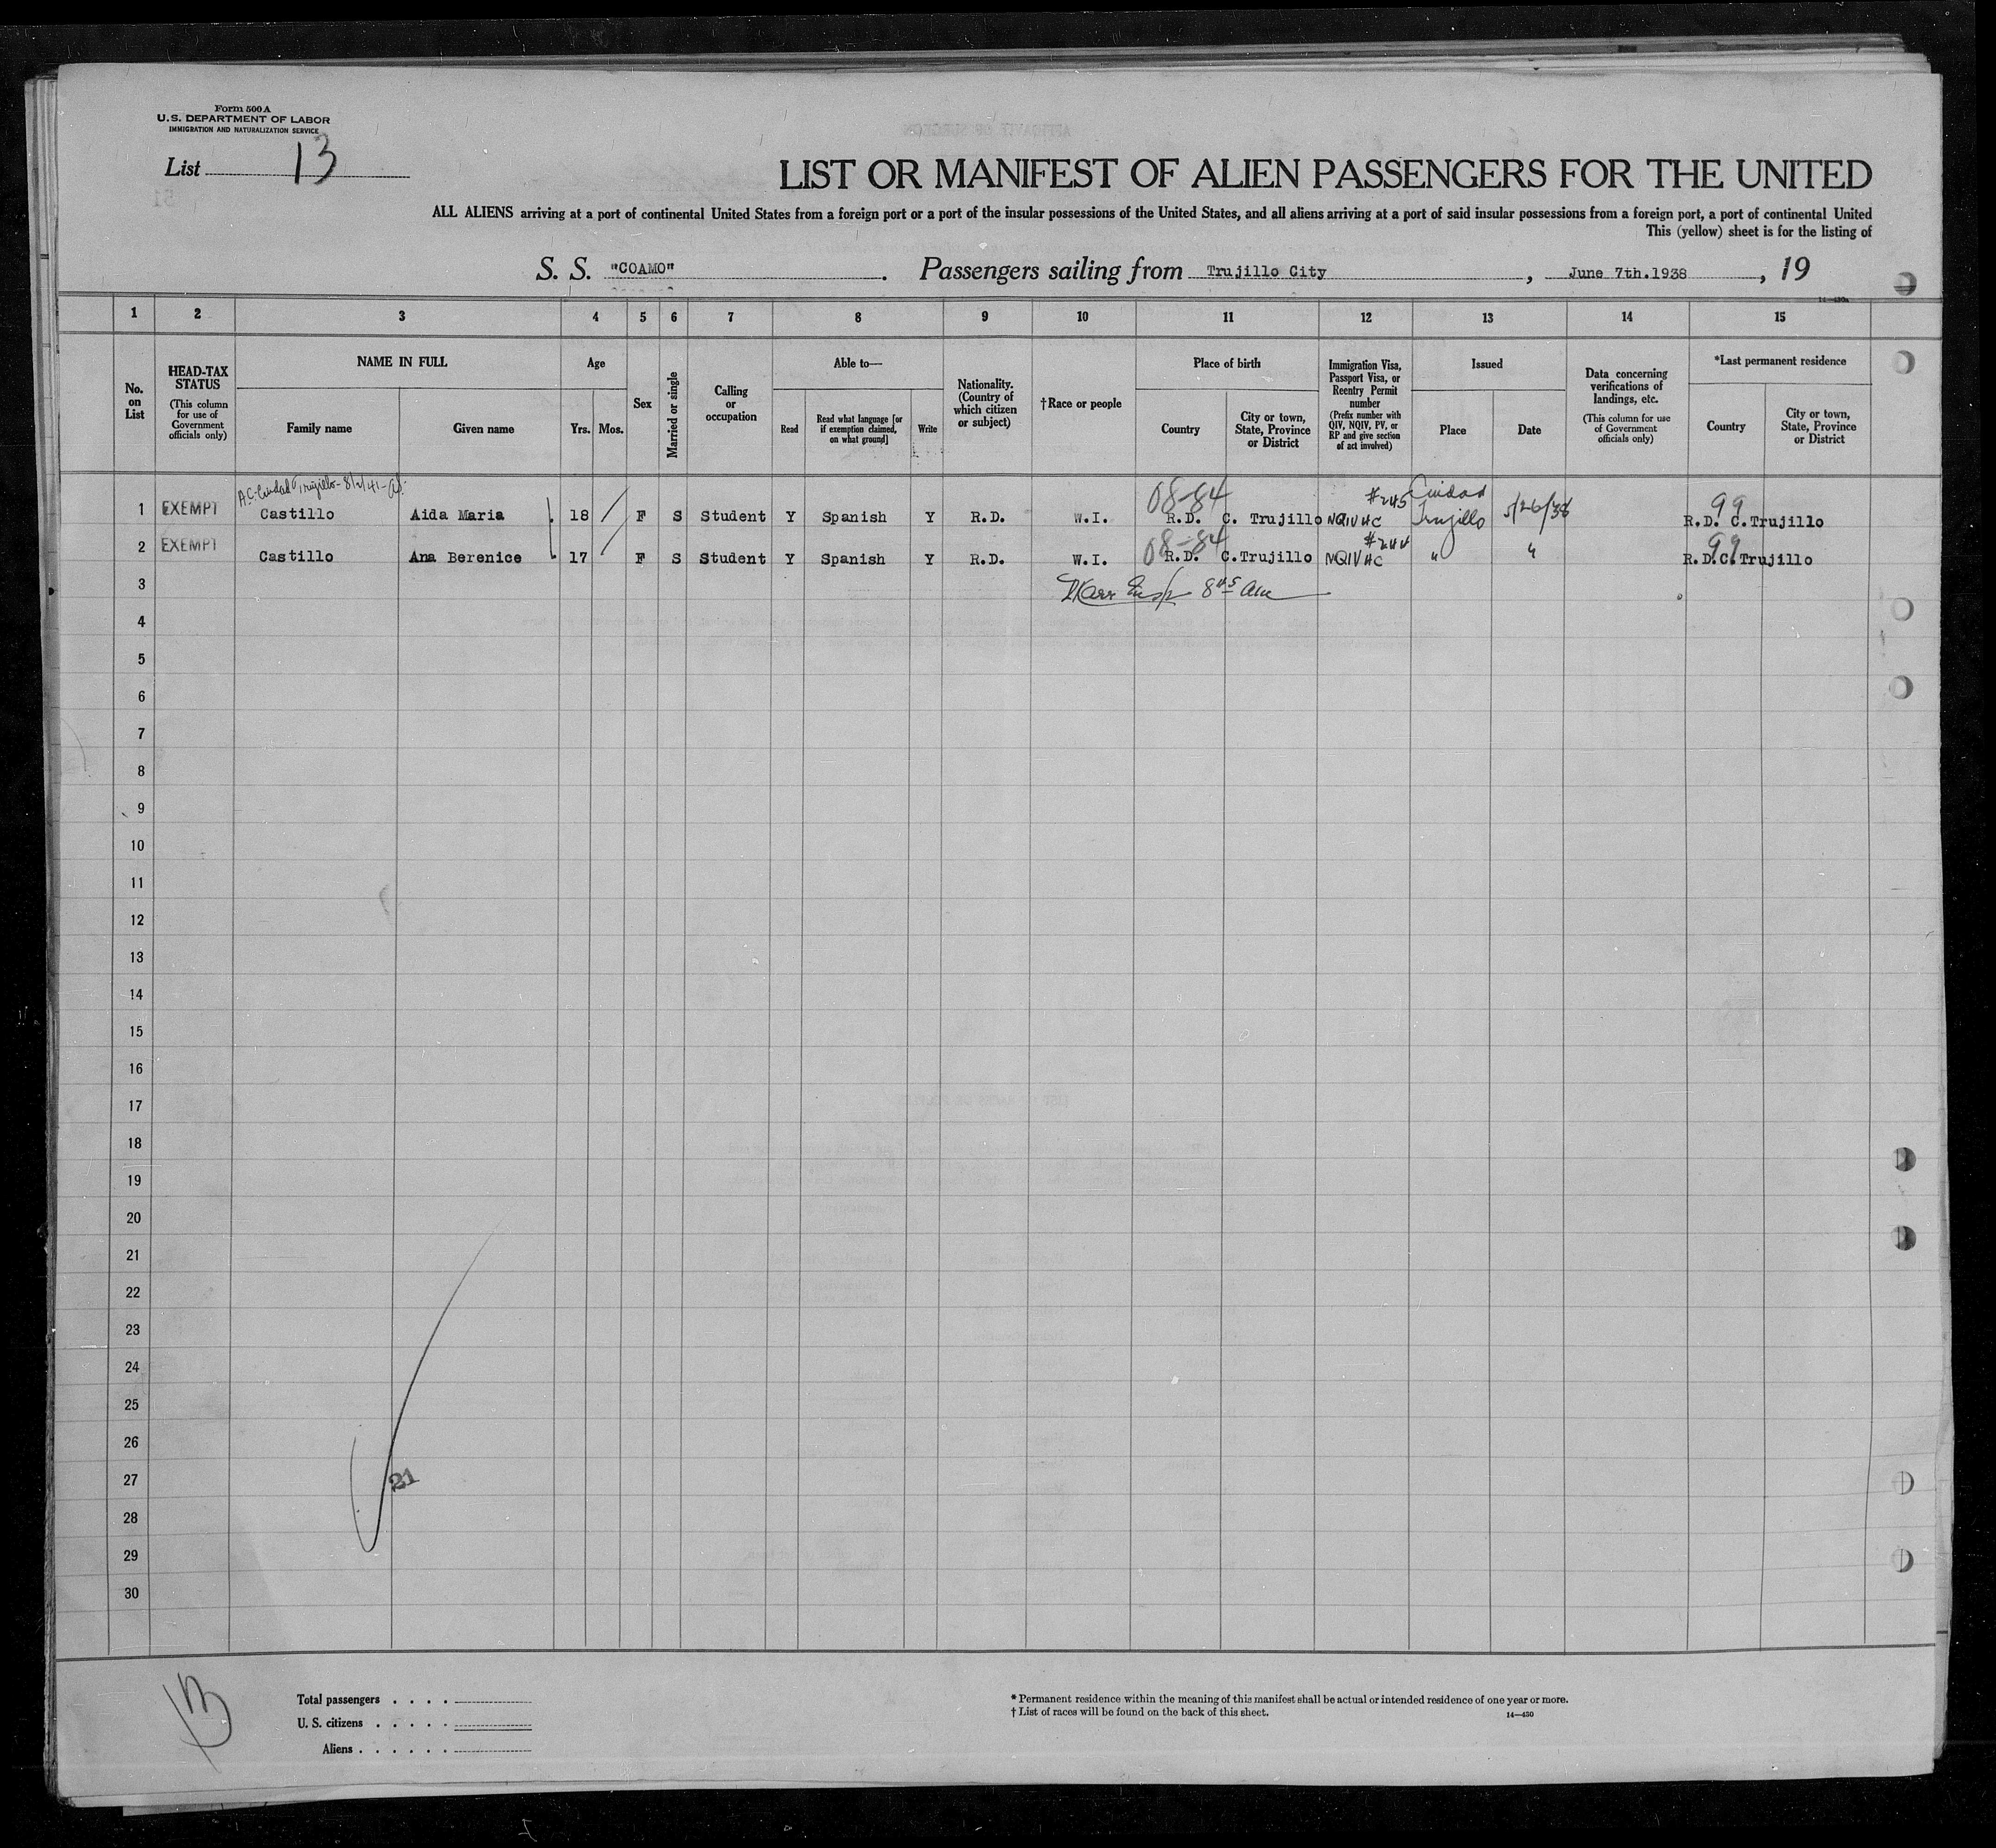 Form 500 A
U.S. DEPARTMENT OF LABOR
IMMIGRATION AND NATURALIZATION SERVICE
List 13
LIST OR MANIFEST OF ALIEN PASSENGERS FOR THE UNITED
ALL ALIENS arriving at a port of continental United States from a foreign port or a port of the insular possessions of the United States, and all aliens arriving at a port of said insular possessions from a foreign port, a port of continental United
This (yellow) sheet is for the listing of
S. S. "COAMO". Passengers sailing from Trujillo City, June 7th.1938, 19
1 2 3 4 5 6 7 8 9 10 11 12 13 14 15
No. on List
HEAD-TAX STATUS
(This column for use of Government officials only)
NAME IN FULL
Family name
Given name
Age
Yrs. Mos.
Sex
Married or single
Calling or occupation
Able to—
Read
Read what language [or if exemption claimed, on what ground]
Write
Nationality. (Country of which citizen or subject)
†Race or people
Place of birth
Country
City or town, State, Province or District
Immigration Visa, Passport Visa, or Reentry Permit number
(Prefix number with QIV, NQIV, PV, or RP and give section of act involved)
Issued
Place
Date
Data concerning verifications of landings, etc.
(This column for use of Government officials only)
*Last permanent residence
Country
City or town, State, Province or District
A.C. Ciudad Trujillo - 8/2/41
08-84 #245 Ciudad 99
1 EXEMPT Castillo Aida Maria 18 F S Student Y Spanish Y R.D. W.I. R.D. C. Trujillo NQIV 4C Trujillo 5/26/38 R.D. C.Trujillo
08-84 #244 99
2 EXEMPT Castillo Ana Berenice 17 F S Student Y Spanish Y R.D. W.I. R.D. C.Trujillo NQIV 4C " " R.D.C.Trujillo
3
4
5
6
7
8
9
10
11
12
13
14
15
16
17
18
19
20
21
22
23
24
25
26
27 21
28
29
30
13
Total passengers
U. S. citizens
Aliens
* Permanent residence within the meaning of this manifest shall be actual or intended residence of one year or more.
† List of races will be found on the back of this sheet.
14—430